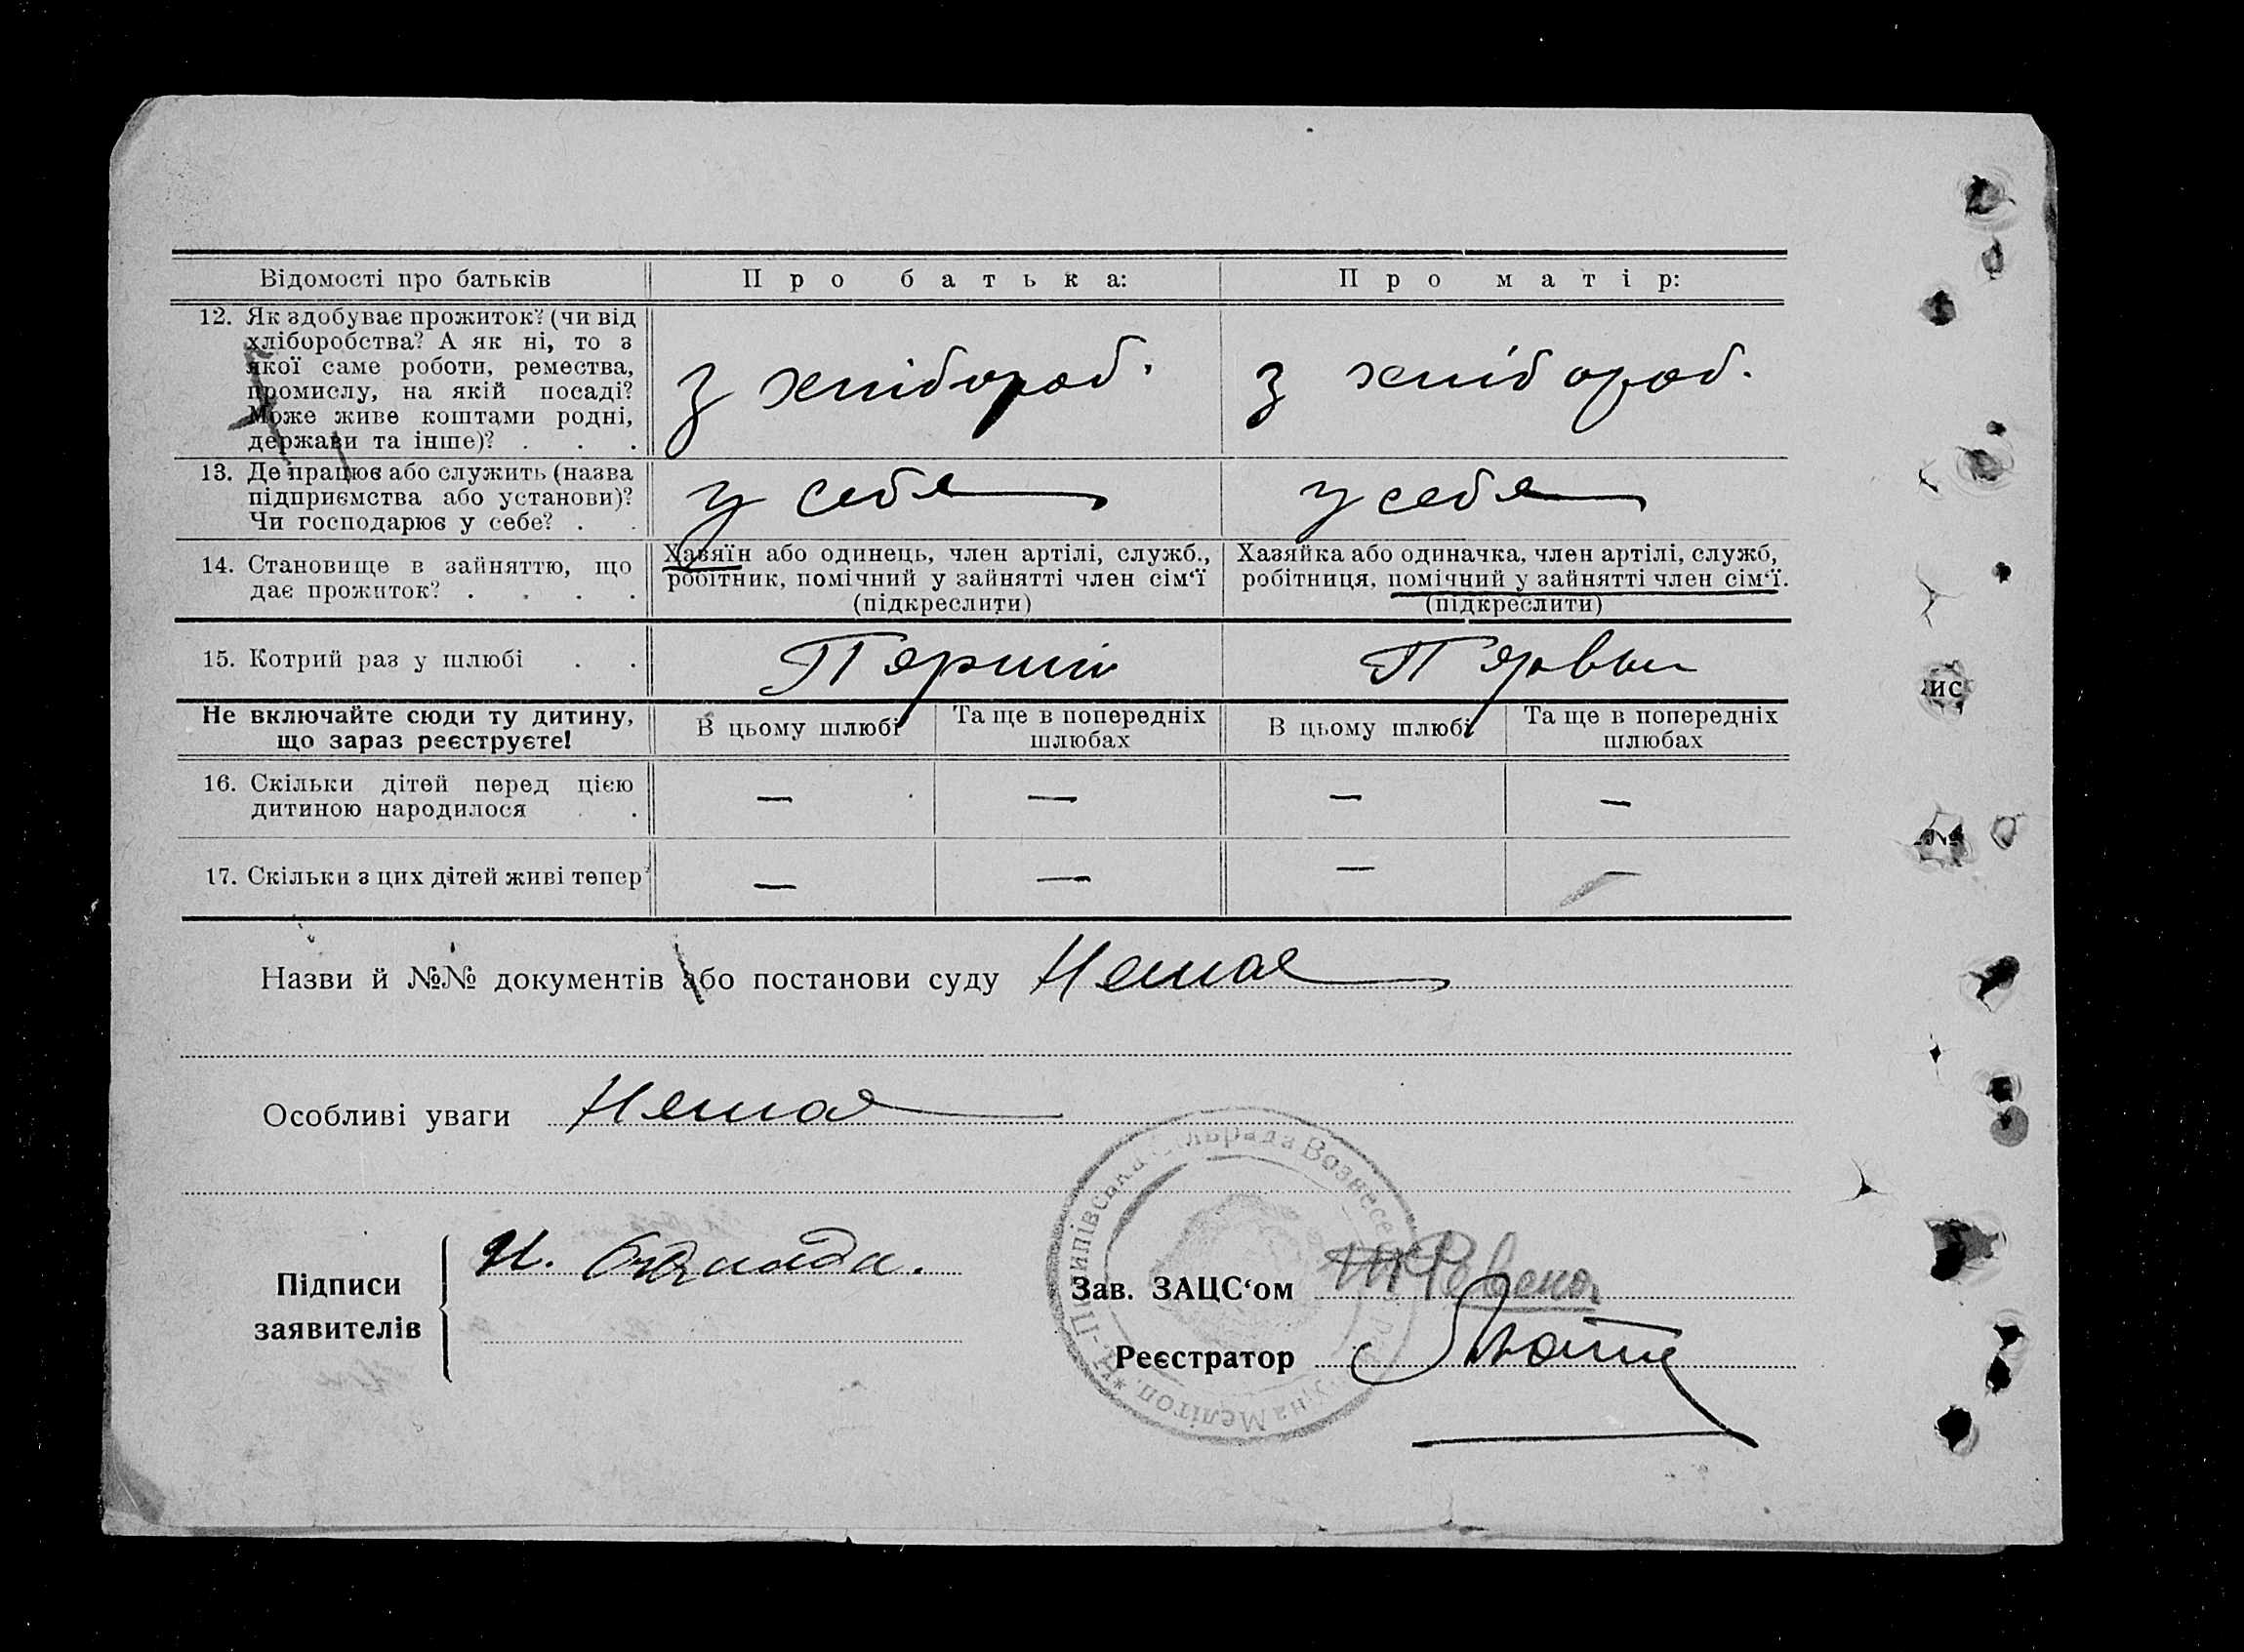 Відомості про батьків Про батька: Про матір:
12. Як здобуває прожиток? (чи від
хліборобства? А як ні, то з
якої саме роботи, ремества,
промислу, на якій посаді?
Може живе коштами родні,
держави та інше)? . . .
З хлібороб. З хлібороб.
13. Де працює або служить (назва
підприємства або установи)?
Чи господарює у себе? . .
у себя у себя
14. Становище в зайняттю, що
дає прожиток? . . . .
Хазяїн або одинець, член артілі, служб.,
робітник, помічний у зайнятті член сім‘ї
(підкреслити)
Хазяйка або одиначка, член артілі, служб,
робітниця, помічний у зайнятті член сім‘ї.
(підкреслити)
15. Котрий раз у шлюбі . .
Перший Первый
Не включайте сюди ту дитину,
що зараз реєструєте!
В цьому шлюбі
Та ще в попередніх
шлюбах
В цьому шлюбі
Та ще в попередніх
шлюбах
16. Скільки дітей перед цією
дитиною народилося . .
— — — —
17. Скільки з цих дітей живі тепер?
— — — —
Назви й №№ документів або постанови суду Немає
Особливі уваги Немає
Підписи
заявителів
И.
Зав. ЗАЦС‘ом
Реєстратор
ис
№